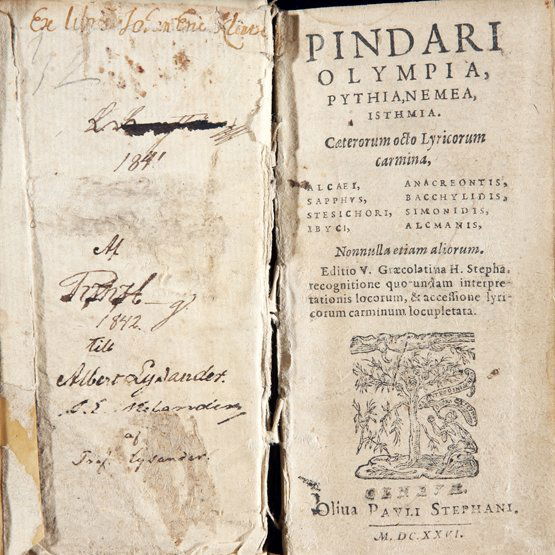 Ex libris Joh. Eric
1841
Af
1842
till
Albert Lysander.
af
Prof. Lysander.
PINDARI
OLYMPIA,
PYTHIA, NEMEA,
ISTHMIA.
Cæterorum octo Lyricorum
carmina,
ALCAEI, ANACREONTIS,
SAPPHVS, BACCHYLIDIS,
STESICHORI, SIMONIDIS,
IBYCI, ALCMANIS,
Nonnulla etiam aliorum.
Editio V. Græcolatina H. Steph.
recognitione quorundam interpre-
tationis locorum, & accessione lyri-
corum carminum locupletata.
GENEVÆ,
Oliua PAVLI STEPHANI.
M. DC. XXVI.